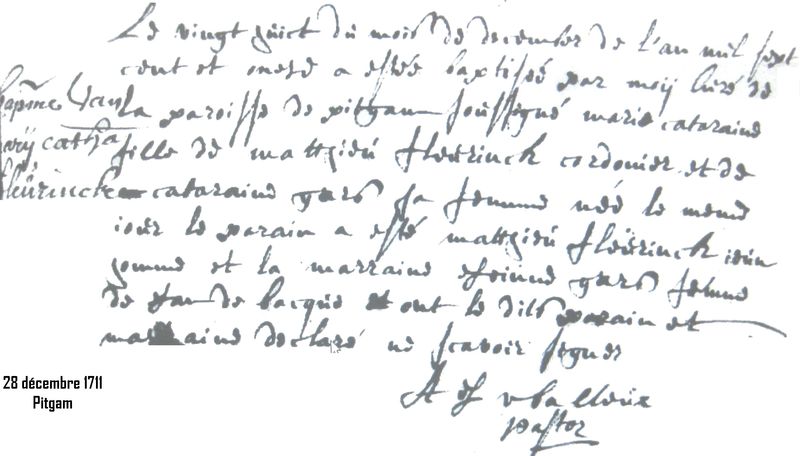 Le vingt huict du mois de december de l'an mil sept
cent et onese a estée baptiséé par moij curé de
la paroisse de pitgam soussigné marie cataraine
fille de matthieu fleurinck cordonier et de
cataraine gars sa femme néé le meme
iour le parain a esté matthieu fleurinck ieun
homme et la marraine gars femme
de de bacque et ont le dits parain et
marraine declaré ne scavoir signer
pastor
bapme
cath
fleurinck
28 décembre 1711
Pitgam